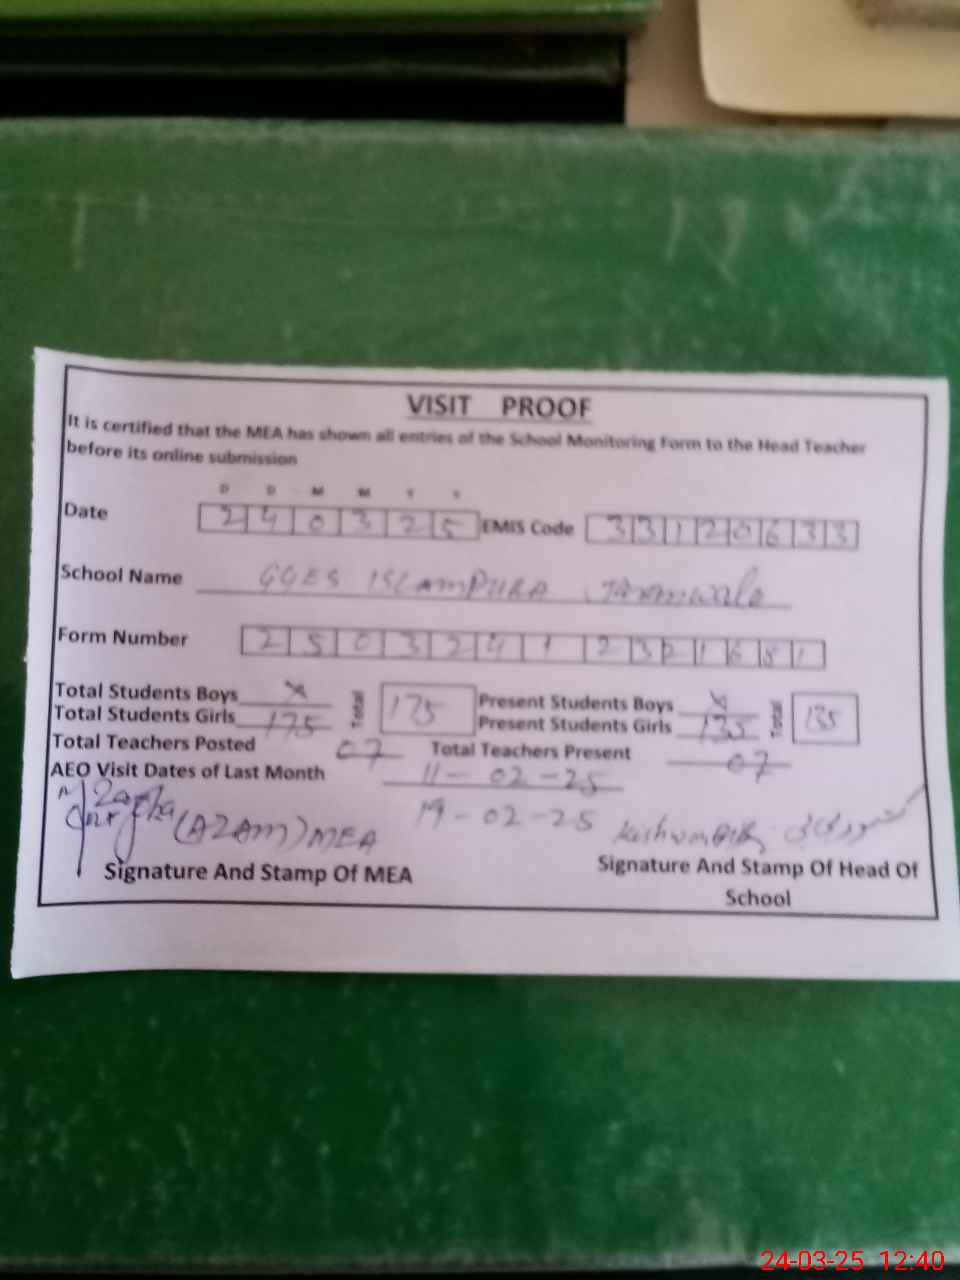 VISIT PROOF
It is certified that the MEA has shown all entries of the School Monitoring Form to the Head Teacher
before its online submission
D D M M Y Y
Date 2 4 0 3 2 5 EMIS Code 3 3 1 2 0 6 3 3
School Name GGES ISLAMPURA
Form Number 2 5 0 3 2 4 1 2 3 2 1 6 8 1
Total Students Boys X Total 175 Present Students Boys X Total 135
Total Students Girls 175 Present Students Girls 135
Total Teachers Posted 07 Total Teachers Present 07
AEO Visit Dates of Last Month 11-02-25
19-02-25
(AZAM) MEA
Signature And Stamp Of MEA
Signature And Stamp Of Head Of
School
24-03-25 12:40